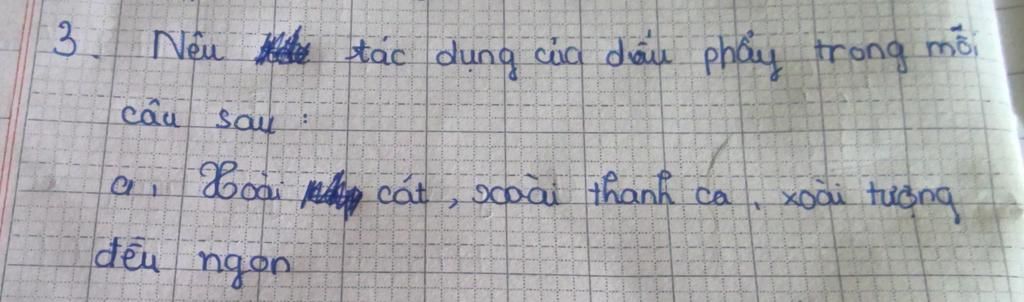 3. Nêu tác dụng của dấu phẩy trong mỗi
câu sau :
a, Xoài cát, xoài thanh ca, xoài tượng
đều ngon